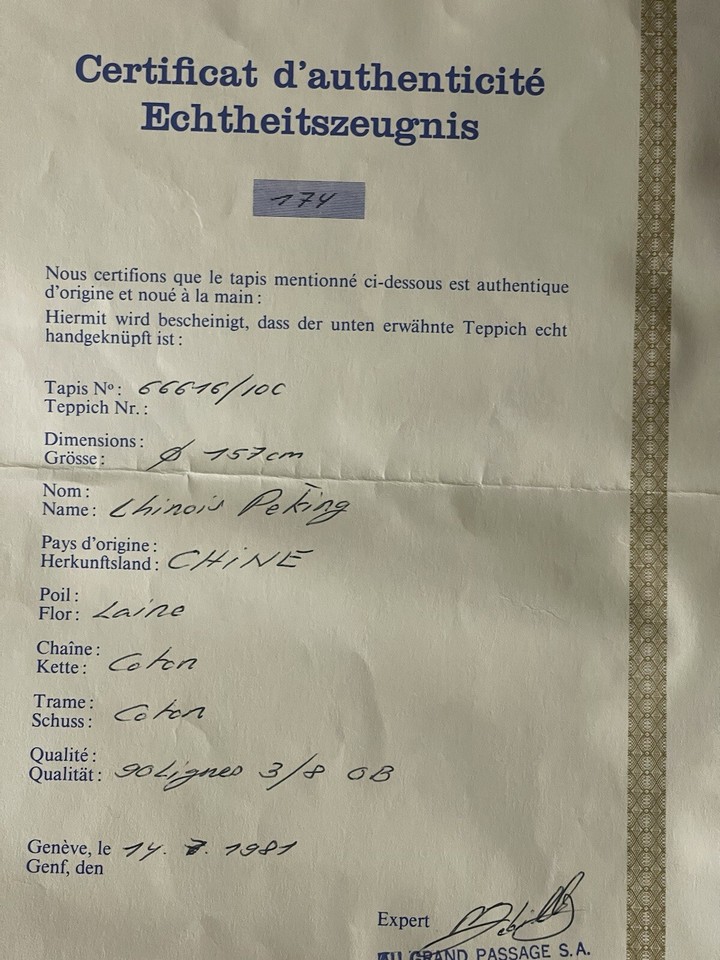 Certificat d'authenticité
Echtheitszeugnis
174
Nous certifions que le tapis mentionné ci-dessous est authentique
d'origine et noué à la main :
Hiermit wird bescheinigt, dass der unten erwähnte Teppich echt
handgeknüpft ist :
Tapis Nº : 66616/10C
Teppich Nr. :
Dimensions :
Grösse : ⌀ 157 cm
Nom :
Name : Chinois Peking
Pays d'origine :
Herkunftsland : CHINE
Poil :
Flor : Laine
Chaîne :
Kette : Coton
Trame :
Schuss : Coton
Qualité :
Qualität : 90 Lignes 3/8 OB
Genève, le 14. 7. 1981
Genf, den
Expert
AU GRAND PASSAGE S.A.